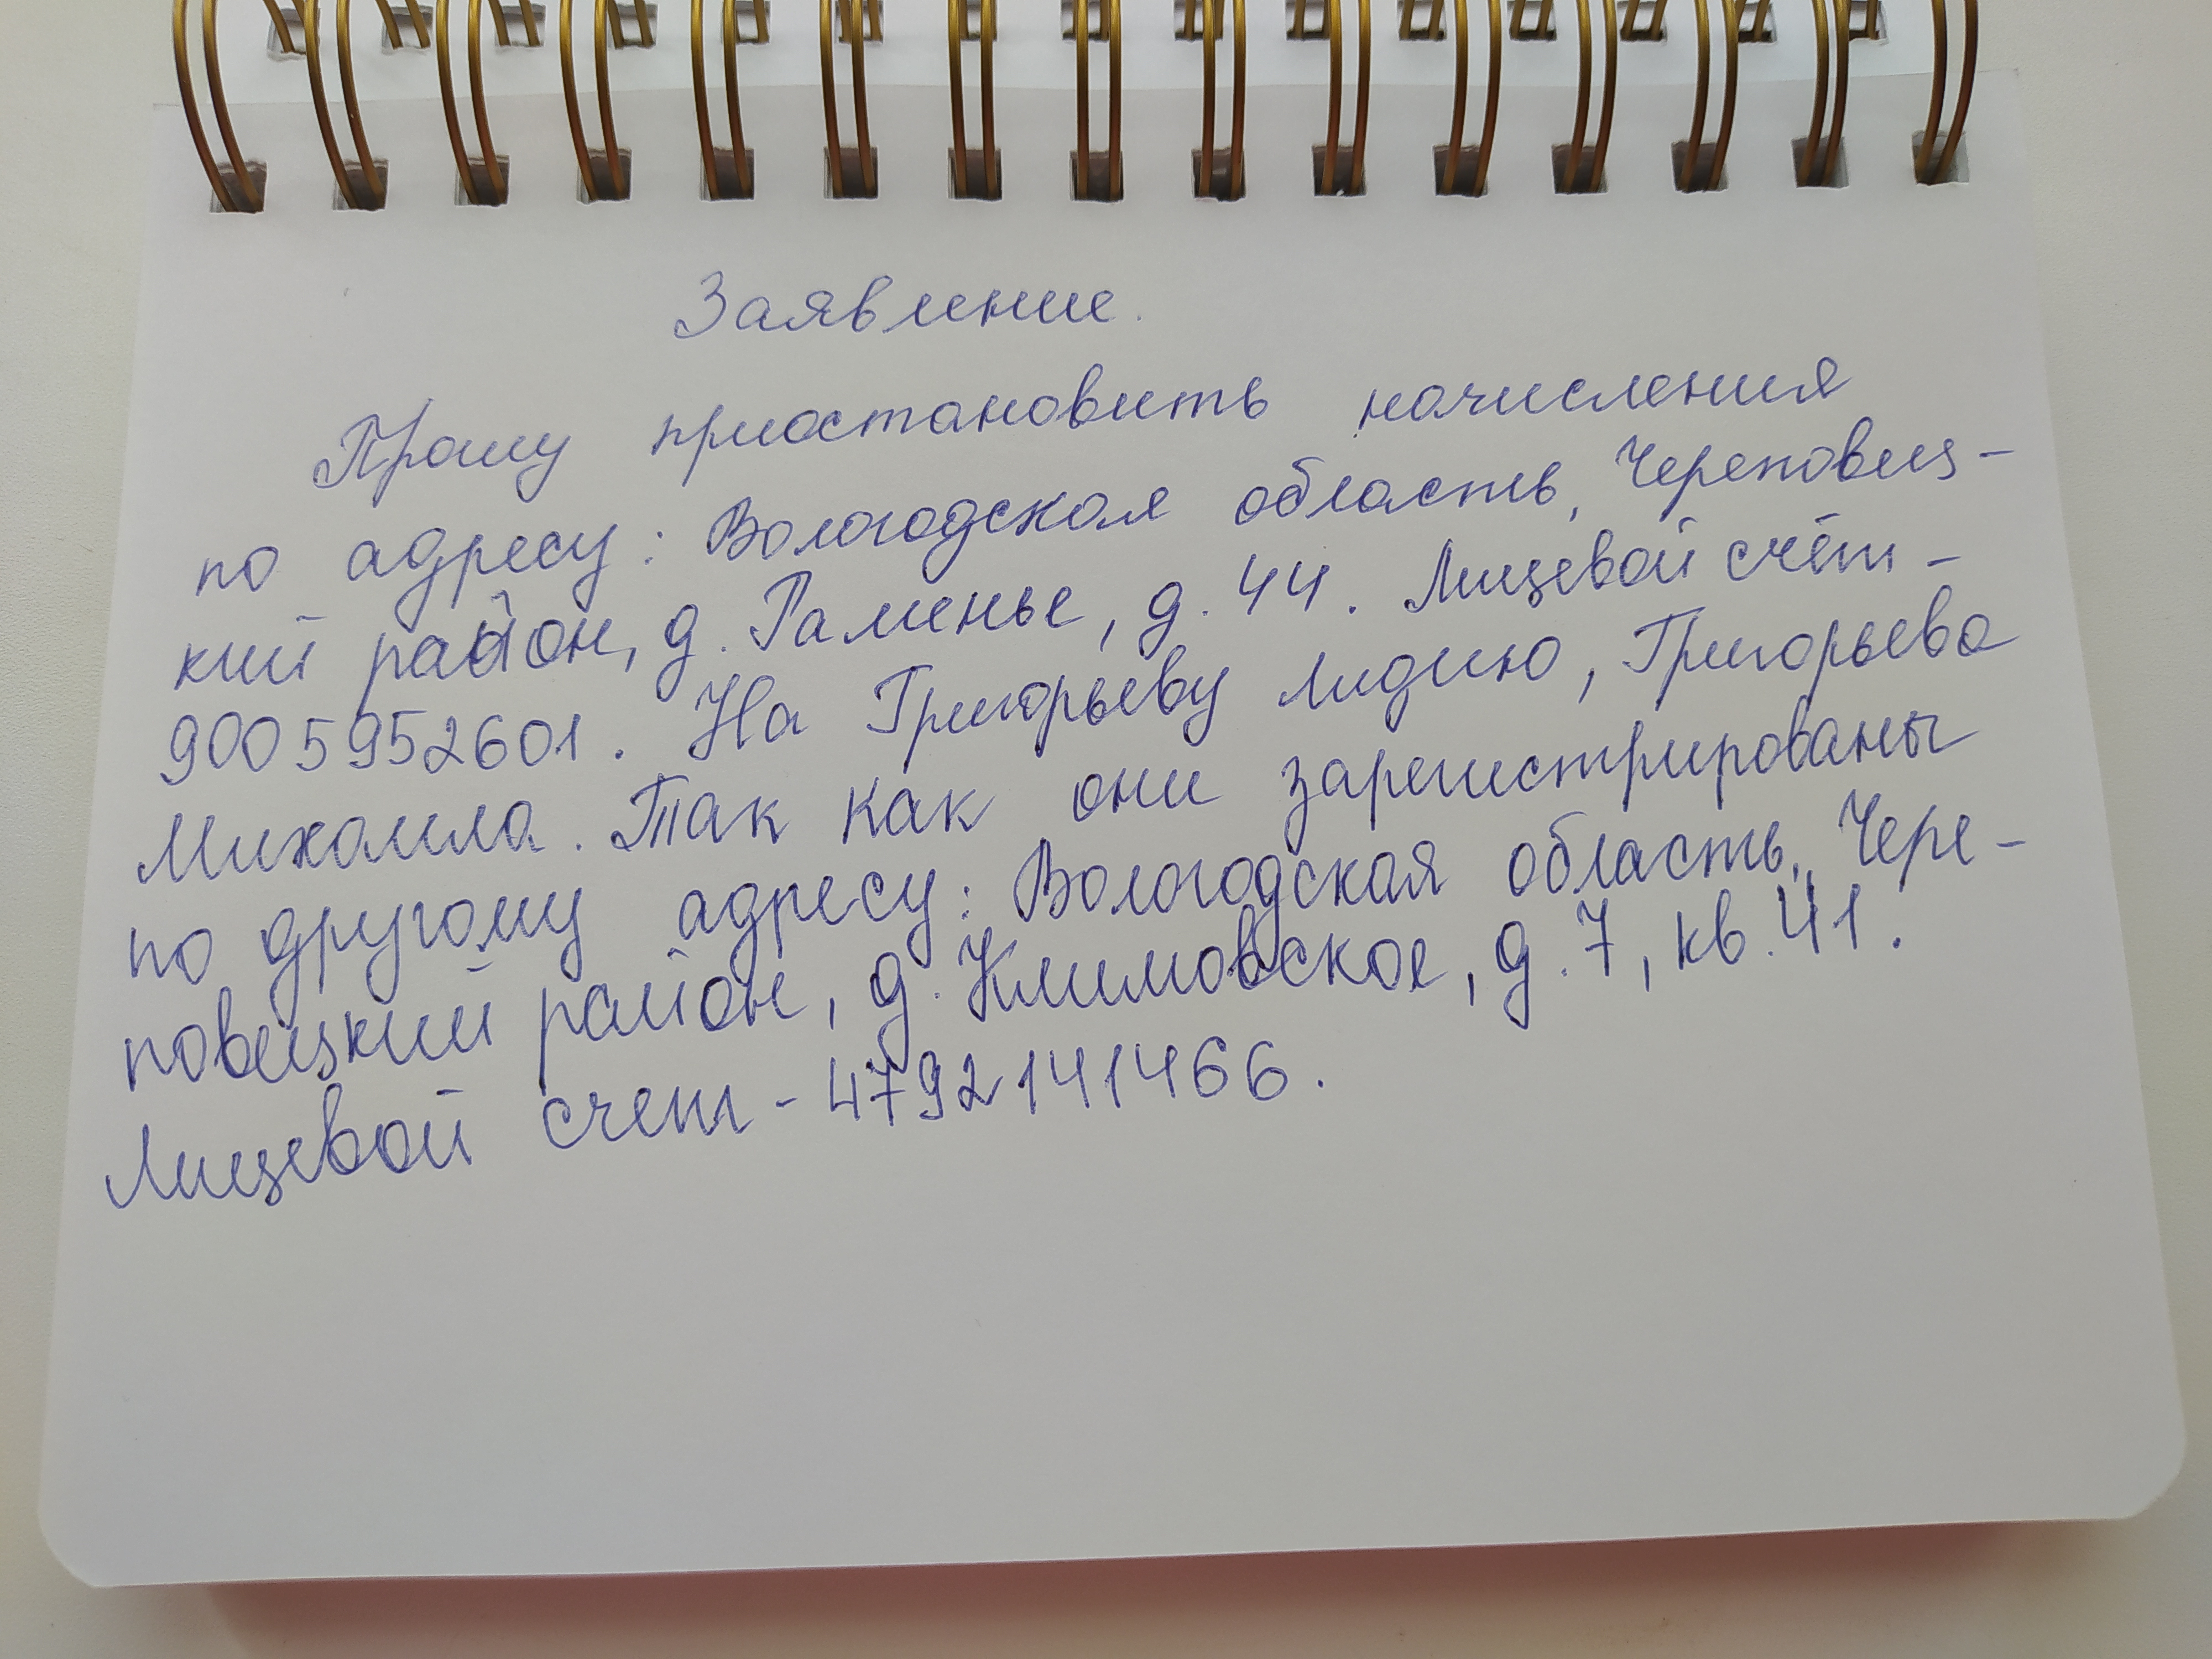 Заявление.
Прошу приостановить начисления
по адресу: Вологодская область, Череповец-
кий район, д. Раменье, д. 44. Лицевой счёт -
9005952601. На Григорьеву Лидию, Григорьева
Михаила. Так как они зарегистрированы
по другому адресу: Вологодская область, Чере-
повецкий район, д. Климовское, д. 7, кв. 41.
Лицевой счет - 4792141466.